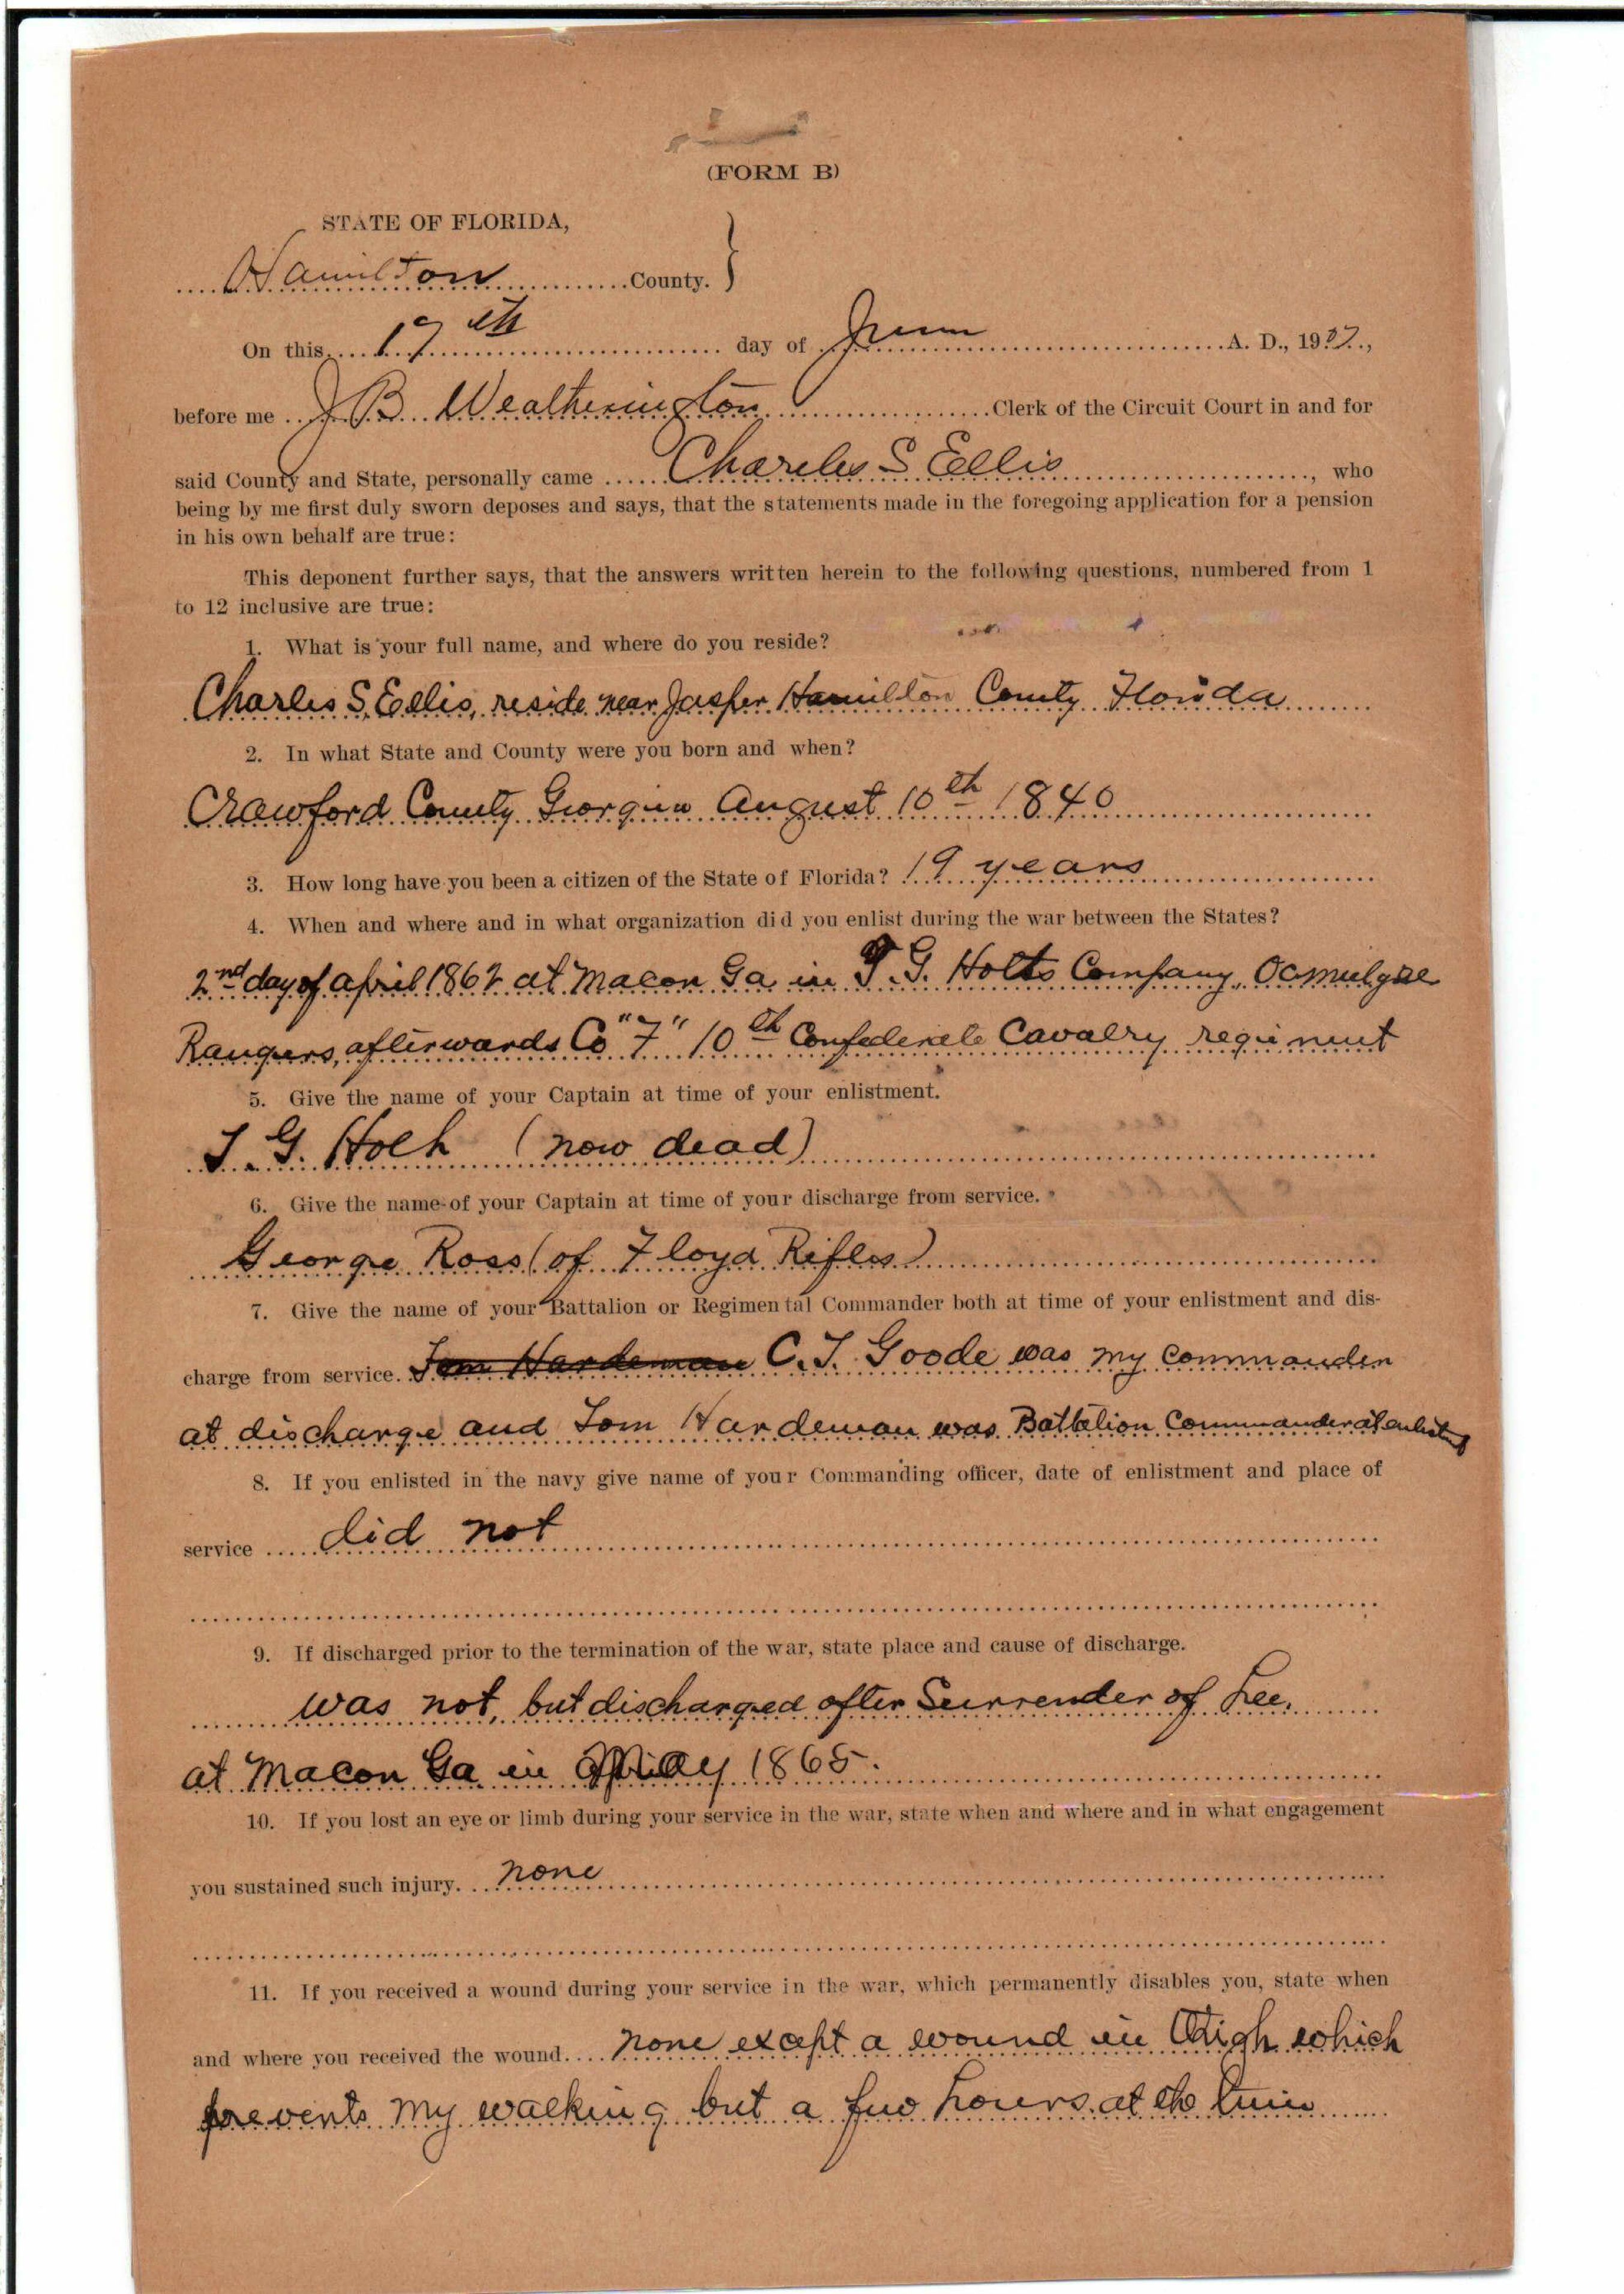 (FORM B)
STATE OF FLORIDA,
Hamilton County. }
On this 17th day of June A. D., 1907,
before me J B Weatherington Clerk of the Circuit Court in and for
said County and State, personally came Chareles S Ellis, who
being by me first duly sworn deposes and says, that the statements made in the foregoing application for a pension
in his own behalf are true:
This deponent further says, that the answers written herein to the following questions, numbered from 1
to 12 inclusive are true:
1. What is your full name, and where do you reside?
Charles S. Ellis, reside near Jasper Hamilton County Florida
2. In what State and County were you born and when?
Crawford County Georgia August 10th 1840
3. How long have you been a citizen of the State of Florida? 19 years
4. When and where and in what organization did you enlist during the war between the States?
2nd day of april 1862 at Macon Ga in T. G. Holts Company, Ocmulgee
Rangers, afterwards Co "F" 10th Confederate Cavalry regiment
5. Give the name of your Captain at time of your enlistment.
T. G. Holt (now dead)
6. Give the name of your Captain at time of your discharge from service.
George Ross (of Floyd Rifles)
7. Give the name of your Battalion or Regimental Commander both at time of your enlistment and dis-
charge from service. Tom Hardeman C. T. Goode was my commander
at discharge and Tom Hardeman was Battalion Commander at
8. If you enlisted in the navy give name of your Commanding officer, date of enlistment and place of
service did not
9. If discharged prior to the termination of the war, state place and cause of discharge.
was not, but discharged after Surrender of Lee.
at Macon Ga in May 1865.
10. If you lost an eye or limb during your service in the war, state when and where and in what engagement
you sustained such injury. none
11. If you received a wound during your service in the war, which permanently disables you, state when
and where you received the wound. none except a wound in thigh which
prevents my walking but a few hours at the time